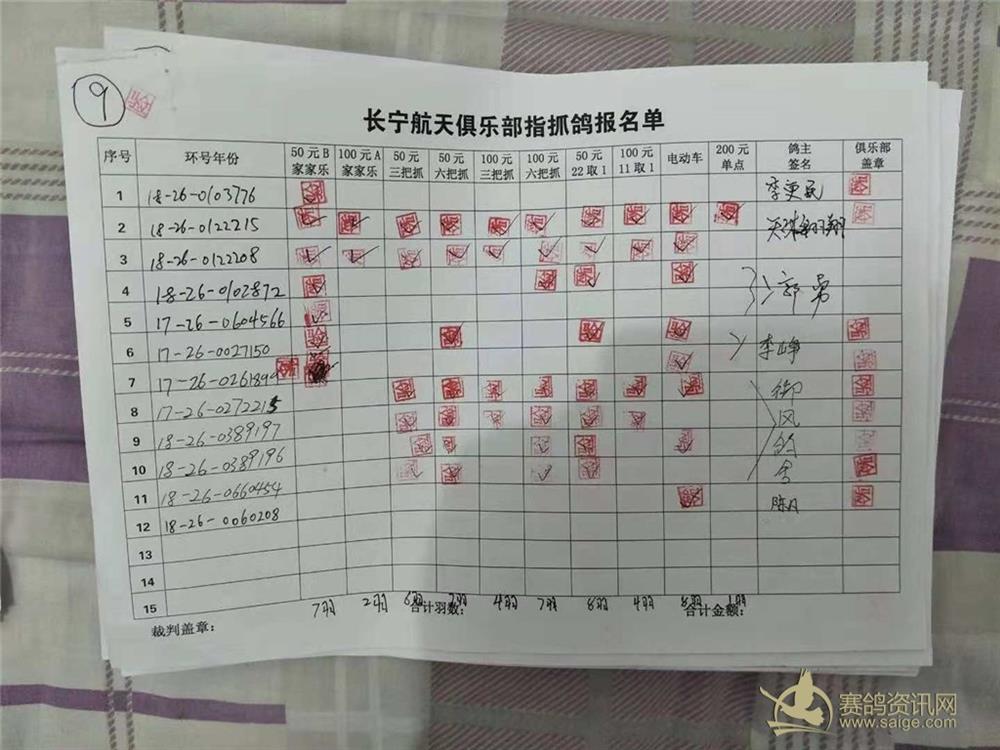 9
长宁航天俱乐部指抓鸽报名单
序号 环号年份 50元B家家乐 100元A家家乐 50元三把抓 50元六把抓 100元三把抓 100元六把抓 50元22取1 100元11取1 电动车 200元单点 鸽主签名 俱乐部盖章
1 18-26-0103776 李更民
2 18-26-0122215 翔
3 18-26-0122208
4 18-26-0102872 郭勇
5 17-26-0604566
6 17-26-0027150 李峥
7 17-26-0261899 御
8 17-26-0272215 风
9 18-26-0389197
10 18-26-0389196 舍
11 18-26-0660454
12 18-26-0060208
13
14
15 7羽 2羽 6羽 7羽 4羽 7羽 8羽 4羽 8羽 1羽
合计羽数: 合计金额:
裁判盖章:
赛鸽资讯网
www.saige.com